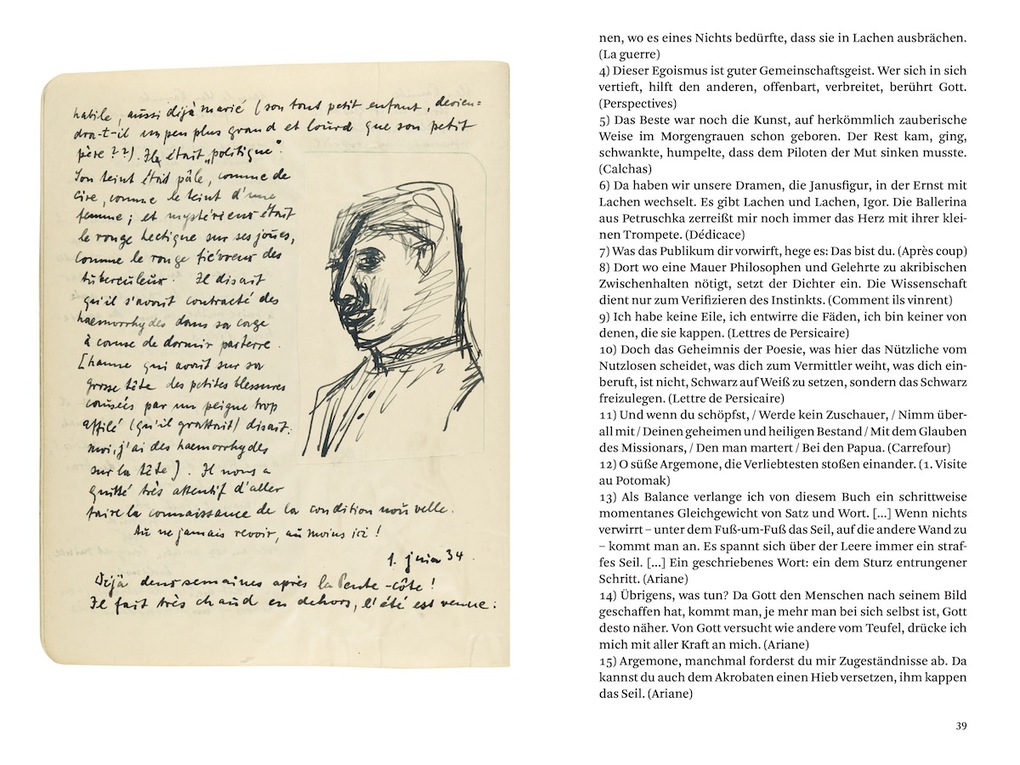 habile, aussi déjà marié (son tout petit enfant, devien=
dra-t-il un peu plus grand et lourd que son petit
père??). Il était „politique“.
Son teint était pâle, comme de
cire, comme le teint d'une
femme; et mystérieux était
le rouge hectique sur ses joues,
comme le rouge fiévreux des
tuberculeux. Il disait
qu'il s'avait contracté des
haemorrhydes dans sa cage
à cause de dormir parterre.
[hanne qui avait sur sa
grosse tête des petites blessures
causées par un peigne trop
affilé (qu'il grattait) disait:
moi, j'ai des haemorrhydes
sur la tête]. Il nous a
quitté très attentif d'aller
faire la connaissance de la condition nouvelle.
Au ne jamais revoir, au moins ici!
1. juin 34.
Déjà deux semaines après la Pente-côte!
Il fait très chaud en dehors, l'été est venue:
nen, wo es eines Nichts bedürfte, dass sie in Lachen ausbrächen.
(La guerre)
4) Dieser Egoismus ist guter Gemeinschaftsgeist. Wer sich in sich
vertieft, hilft den anderen, offenbart, verbreitet, berührt Gott.
(Perspectives)
5) Das Beste war noch die Kunst, auf herkömmlich zauberische
Weise im Morgengrauen schon geboren. Der Rest kam, ging,
schwankte, humpelte, dass dem Piloten der Mut sinken musste.
(Calchas)
6) Da haben wir unsere Dramen, die Janusfigur, in der Ernst mit
Lachen wechselt. Es gibt Lachen und Lachen, Igor. Die Ballerina
aus Petruschka zerreißt mir noch immer das Herz mit ihrer klei-
nen Trompete. (Dédicace)
7) Was das Publikum dir vorwirft, hege es: Das bist du. (Après coup)
8) Dort wo eine Mauer Philosophen und Gelehrte zu akribischen
Zwischenhalten nötigt, setzt der Dichter ein. Die Wissenschaft
dient nur zum Verifizieren des Instinkts. (Comment ils vinrent)
9) Ich habe keine Eile, ich entwirre die Fäden, ich bin keiner von
denen, die sie kappen. (Lettres de Persicaire)
10) Doch das Geheimnis der Poesie, was hier das Nützliche vom
Nutzlosen scheidet, was dich zum Vermittler weiht, was dich ein-
beruft, ist nicht, Schwarz auf Weiß zu setzen, sondern das Schwarz
freizulegen. (Lettre de Persicaire)
11) Und wenn du schöpfst, / Werde kein Zuschauer, / Nimm über-
all mit / Deinen geheimen und heiligen Bestand / Mit dem Glauben
des Missionars, / Den man martert / Bei den Papua. (Carrefour)
12) O süße Argemone, die Verliebtesten stoßen einander. (1. Visite
au Potomak)
13) Als Balance verlange ich von diesem Buch ein schrittweise
momentanes Gleichgewicht von Satz und Wort. [...] Wenn nichts
verwirrt – unter dem Fuß-um-Fuß das Seil, auf die andere Wand zu
– kommt man an. Es spannt sich über der Leere immer ein straf-
fes Seil. [...] Ein geschriebenes Wort: ein dem Sturz entrungener
Schritt. (Ariane)
14) Übrigens, was tun? Da Gott den Menschen nach seinem Bild
geschaffen hat, kommt man, je mehr man bei sich selbst ist, Gott
desto näher. Von Gott versucht wie andere vom Teufel, drücke ich
mich mit aller Kraft an mich. (Ariane)
15) Argemone, manchmal forderst du mir Zugeständnisse ab. Da
kannst du auch dem Akrobaten einen Hieb versetzen, ihm kappen
das Seil. (Ariane)
39